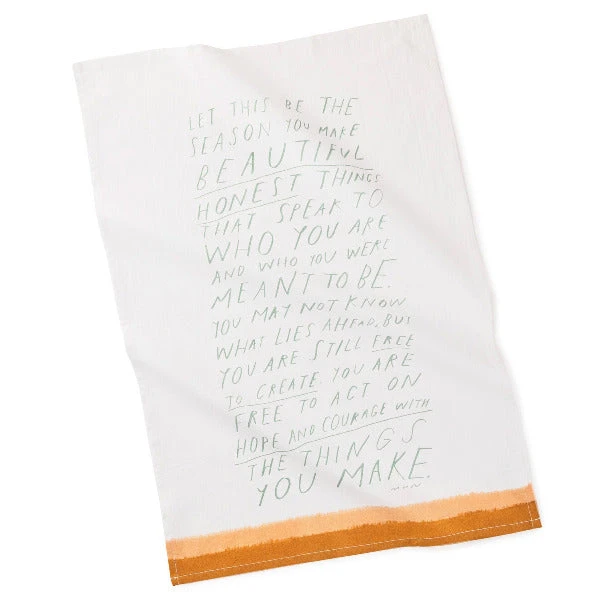 LET THIS BE THE
SEASON YOU MAKE
BEAUTIFUL
HONEST THINGS
THAT SPEAK TO
WHO YOU ARE
AND WHO YOU WERE
MEANT TO BE.
YOU MAY NOT KNOW
WHAT LIES AHEAD, BUT
YOU ARE STILL FREE
TO CREATE. YOU ARE
FREE TO ACT ON
HOPE AND COURAGE WITH
THE THINGS
YOU MAKE.